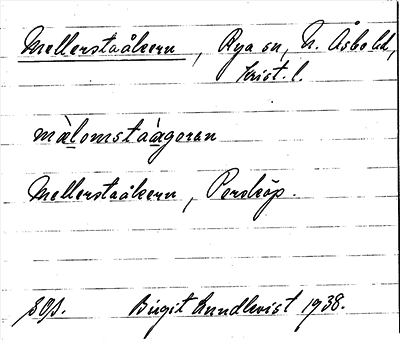 Mellerstaåkern, Rya sn, N. Åsbo hd,
Krist. l.
màlomstaàgoran
Mellerstaåkern, Perstorp.
Birgit Lundkvist 1938.